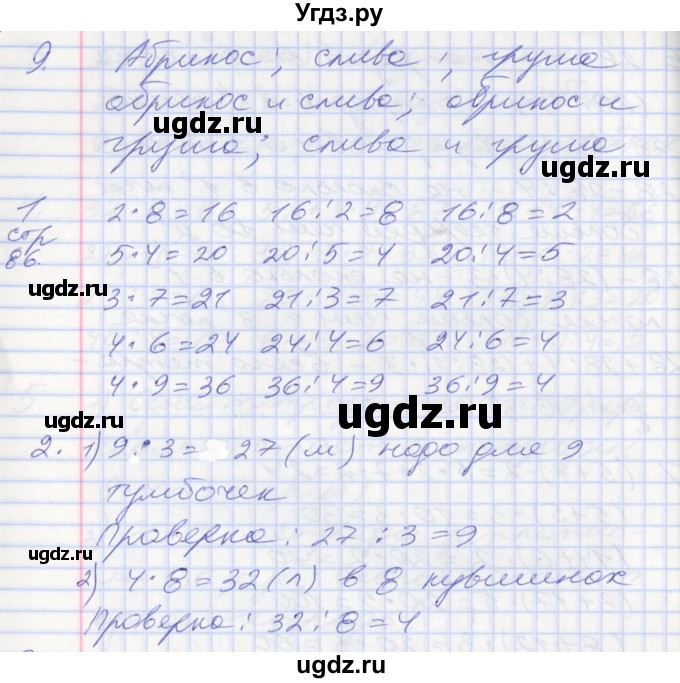 Угдз.ру
9. Абрикос; слива; груша
абрикос и слива; абрикос и
ugdz.ru
груша; слива и груша
ugdz.ru
1 2·8=16 16:2=8 16:8=2
стр 86. 5·4=20 20:5=4 20:4=5
ugdz.ru
ugdz.ru
3·7=21 21:3=7 21:7=3
4·6=24 24:4=6 24:6=4
4·9=36 36:4=9 36:9=4
ugdz.ru
2. 1) 9·3= 27(м) надо для 9
тумбочек
ugdz.ru
Проверка: 27:3=9
ugdz.ru
2) 4·8=32(л) в 8 кувшинах
Проверка: 32:8=4
ugdz.ru
ugdz.ru